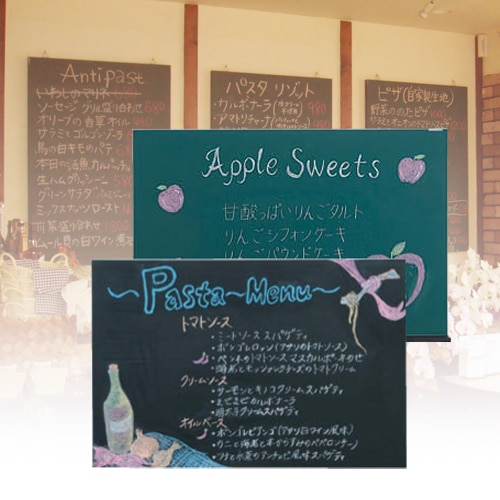 Antipast
いわしのマリネ 650
ソーセージグリル盛り合わせ 680
オリーブの香草オイル 450
サラミとゴルゴンゾーラ
鳥の白キモのパテ
本日の海魚カルパッチョ
生ハムグリッシーニ
グリーンサラダ
ミックスナッツロースト
パスタ リゾット
・カルボナーラ 980
・アマトリチャーナ
ピザ(自家製生地)
野菜ののたピザ
サラミとオニオンの
Apple Sweets
甘酸っぱいりんごタルト
りんごシフォンケーキ
りんごパウンドケーキ
~Pasta~Menu~
トマトソース
・ミートソース スパゲティ
・ボンゴレロッソ(アサリのトマトソース)
・ペンネのトマトソース マスカルポーネのせ
・海老とモッツァレラチーズのトマトクリーム
クリームソース
・サーモンとキノコクリームスパゲティ
・まぜまぜカルボナーラ
・明太子クリームスパゲティ
オイルベース
・ボンゴレビアンコ(アサリ白ワイン風味)
・ウニと海老と本からすみのペペロンチーノ
・ツナと水菜のアンチョビ風味スパゲティ